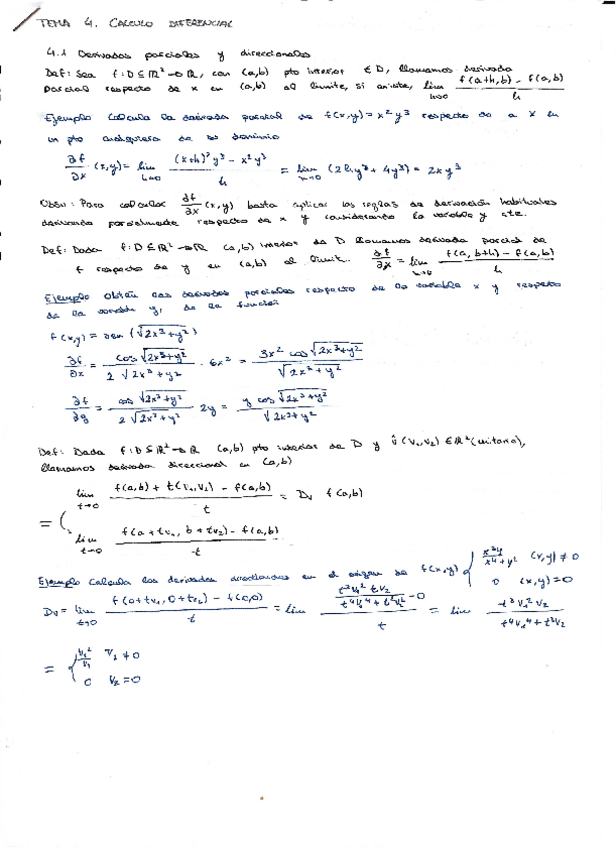 TEMA 4. CALCULO DIFERENCIAL
4.1 Derivadas parciales y direccionales
Def: Sea f: D ⊆ ℝ² → ℝ, con (a,b) pto interior ∈ D, llamamos derivada
parcial respecto de x en (a,b) al límite, si existe, lim h→0 (f(a+h,b) - f(a,b))/h
Ejemplo Calcula la derivada parcial de f(x,y) = x²y³ respecto de a x en
un pto cualquiera de su dominio
∂f/∂x (x,y) = lim h→0 ((x+h)²y³ - x²y³)/h = lim h→0 (2hy³ + 4y³) = 2xy³
Obsv: Para calcular ∂f/∂x (x,y) basta aplicar las reglas de derivación habituales
derivando parcialmente respecto de x y considerando la variable y cte.
Def: Dada f: D ⊆ ℝ² → ℝ (a,b) interior de D llamamos derivada parcial de
f respecto de y en (a,b) al límit. ∂f/∂x = lim h→0 (f(a, b+h) - f(a,b))/h
Ejemplo Obtén las derivadas parciales respecto de la variable x y respecto
de la variable y, de la función
f(x,y) = sen(√(2x³+y²))
∂f/∂x = cos√(2x³+y²) / 2√(2x³+y²) · 6x² = 3x² cos√(2x³+y²) / √(2x³+y²)
∂f/∂y = cos√(2x³+y²) / 2√(2x³+y²) · 2y = y cos√(2x³+y²) / √(2x³+y²)
Def: Dada f: D ⊆ ℝ² → ℝ (a,b) pto interior de D y v̂(v₁,v₂) ∈ ℝ² (unitario),
llamamos derivada direccional en (a,b)
lim t→0 (f(a,b) + t(v₁,v₂) - f(a,b))/t = Dv f(a,b)
= lim t→0 (f(a+tv₁, b+tv₂) - f(a,b))/t
Ejemplo Calcula las derivadas direccionales en el origen de f(x,y) { x²y/(x⁴+y²) (x,y) ≠ 0
0 (x,y) = 0
Dv = lim t→0 (f(0+tv₁, 0+tv₂) - f(0,0))/t = lim (t²v₁² tv₂/(t⁴v₁⁴+t²v₂²) - 0)/t = lim t³v₁²v₂/(t⁴v₁⁴+t³v₂)
= { v₁²/v₁ v₂ ≠ 0
0 v₂ = 0